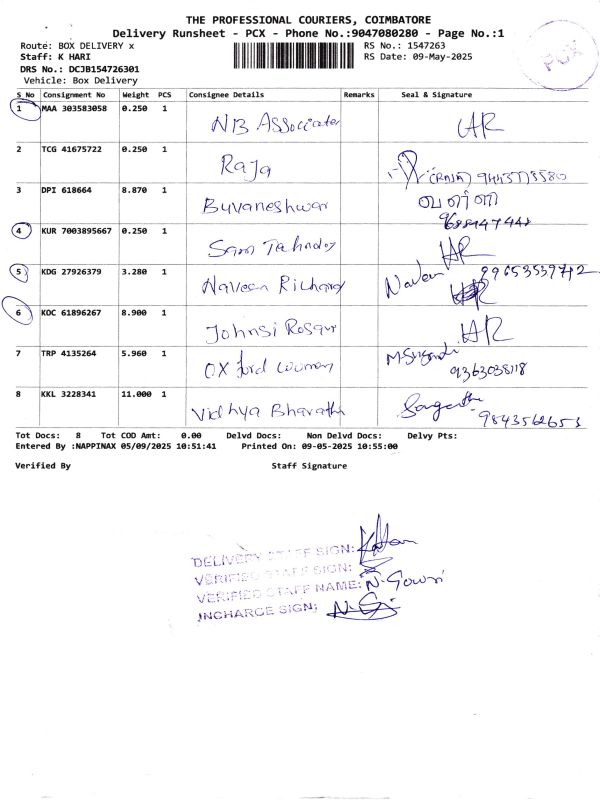 THE PROFESSIONAL COURIERS, COIMBATORE
Delivery Runsheet - PCX - Phone No.:9047080280 - Page No.:1
Route: BOX DELIVERY x RS No.: 1547263
Staff: K HARI RS Date: 09-May-2025
DRS No.: DCJB154726301
Vehicle: Box Delivery
PCX
S No Consignment No Weight PCS Consignee Details Remarks Seal & Signature
1 MAA 303583058 0.250 1 NB Associates
2 TCG 41675722 0.250 1 Raja (RAJA) 9443773580
3 DPI 618664 8.870 1 Buvaneshwar
4 KUR 7003895667 0.250 1
5 KDG 27926379 3.280 1 Naveen Richard Naveen 99653539742
6 KOC 61896267 8.900 1 Johnsi
7 TRP 4135264 5.960 1 OX ford 9363038118
8 KKL 3228341 11.000 1 Vidhya Bharathi 9843562653
Tot Docs: 8 Tot COD Amt: 0.00 Delvd Docs: Non Delvd Docs: Delvy Pts:
Entered By :NAPPINAX 05/09/2025 10:51:41 Printed On: 09-05-2025 10:55:00
Verified By Staff Signature
DELIVERY STAFF SIGN:
VERIFIED STAFF SIGN:
VERIFIED STAFF NAME: N. Gowri
INCHARGE SIGN: